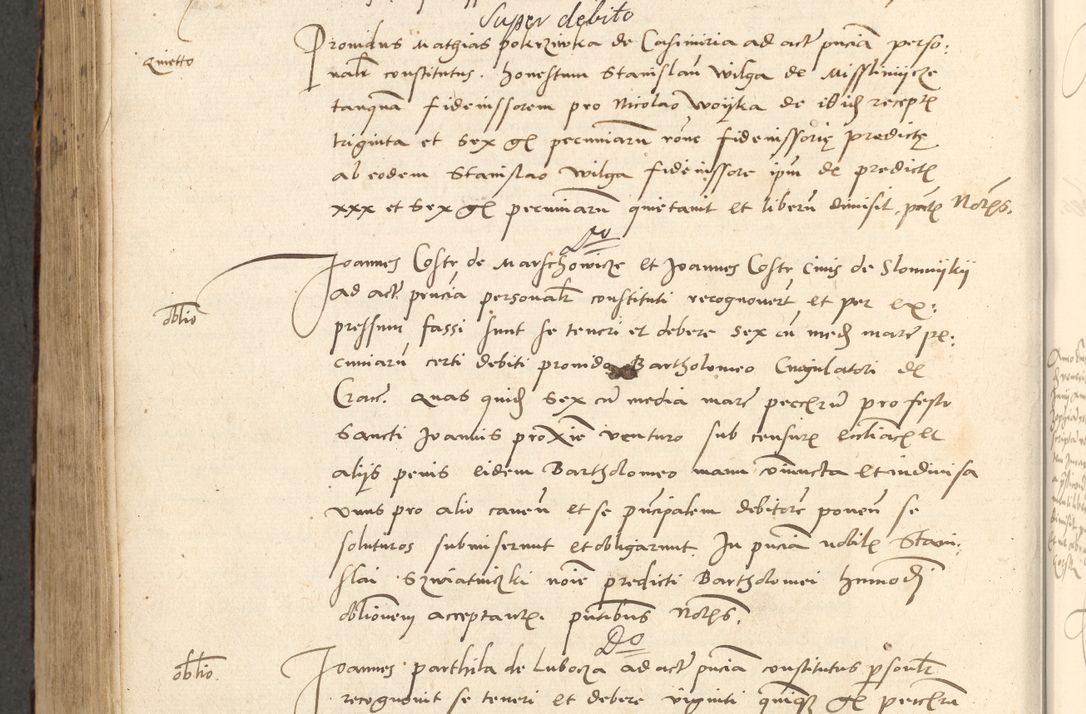 Super debito
Quietto
Providus Mathias pokrziwka de Casimiria ad acta pnciã perso:
nalr constitutus. honestum Stanislaũ Wilga de Misslimijcze
tanquã fideiussorem pro Nicolao Woijtka de ibid recept
triginta et sex gl pecuniarũ rõne fideiussorię predictę
ab eodem Stanislao Wilga fideiussore ipm de predictl
xxx et sex gl pecuniarũ quietauit et liberũ dimisit, pntl Notrs.
Do
oblio
Joannes Costr de Marschowicze et Joannes Costr ciuis de Slomnijkij
ad acta pncia personalr constituti recognouert et per ex:
pressum fassi sunt se teneri et debere sex cũ med marc pe:
cuniarũ certi debiti prouido Bartholomeo Cingulatori de
Crac. quas quid sex cũ media marc peccrũ pro festo
Sancti Joannis proxie venturo sub censurl ecclíacl et
alijs penis eidem Bartholomeo manu coniuncta et indiuisa
vnus pro alio caueñ et se principalem debitore poneñ se
soluturos submiserunt et obligarunt. In pncia nobil Stani:
slai Szwiatniczki noĩe predicti Bartholomei hmmodi
oblionem acceptantl. pntibus Notrs.
Do
oblio.
Joannes parthila de Luborza ad acta pnciã constitutus psonlr
recognouit se teneri et debere viginti quinq gl peccrũ